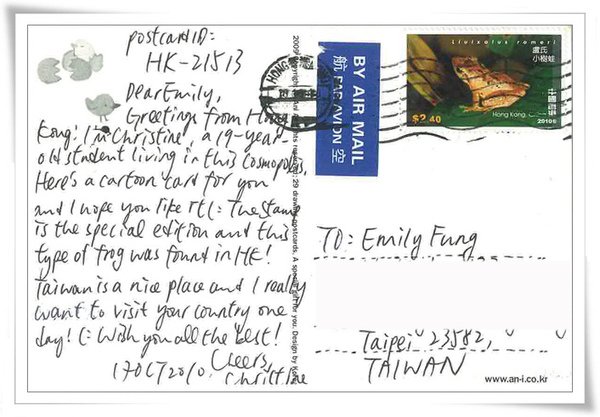 postcardID:
HK-21513
Dear Emily,
Greetings from Hong
Kong! I'm Christine, a 19-year-
old student living in this Cosmopolis.
Here's a cartoon card for you
and I hope you like it(: The Stamp
is the special edition and this
type of frog was found in HK!
Taiwan is a nice place and I really
want to visit your country one
day! (: Wish you all the best!
Cheers,
17OCT2010. Christine
BY AIR MAIL
航 PAR AVION 空
HONG KONG
Liuixalus romeri
盧氏
小樹蛙
$2.40
Hong Kong,
中國香港
2010
TO: Emily Fung
Taipei 23582,
TAIWAN
www.an-i.co.kr